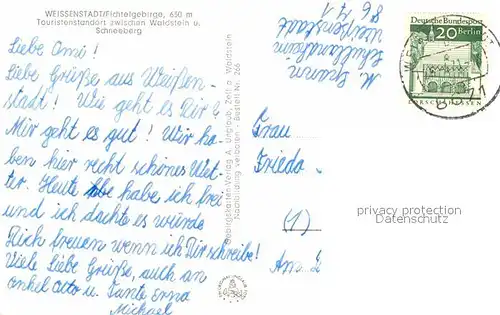 WEISSENSTADT/Fichtelgebirge, 630 m
Touristenstandort zwischen Waldstein u.
Schneeberg
Liebe Omi!
Liebe Grüße aus Weißen-
stadt! Wie geht es Dir?
Mir geht es gut! Wir ha-
ben hier recht schönes Wet-
ter. Heute habe ich frei
und ich dachte es würde
Dich freuen wenn ich Dir schreibe!
Viele Liebe Grüße, auch an
Onkel Otto u. Tante Erna
Michael
Gebirgsketten-Verlag A. Unglaub, Zell a. Waldstein
Nachbildung verboten Bestell Nr. 266
M.
Schullandheim
Weißenstadt
8671
Deutsche Bundespost
20 Berlin
LORSCH/HESSEN
Frau
Frieda
(1)
Am
privacy protection
Datenschutz